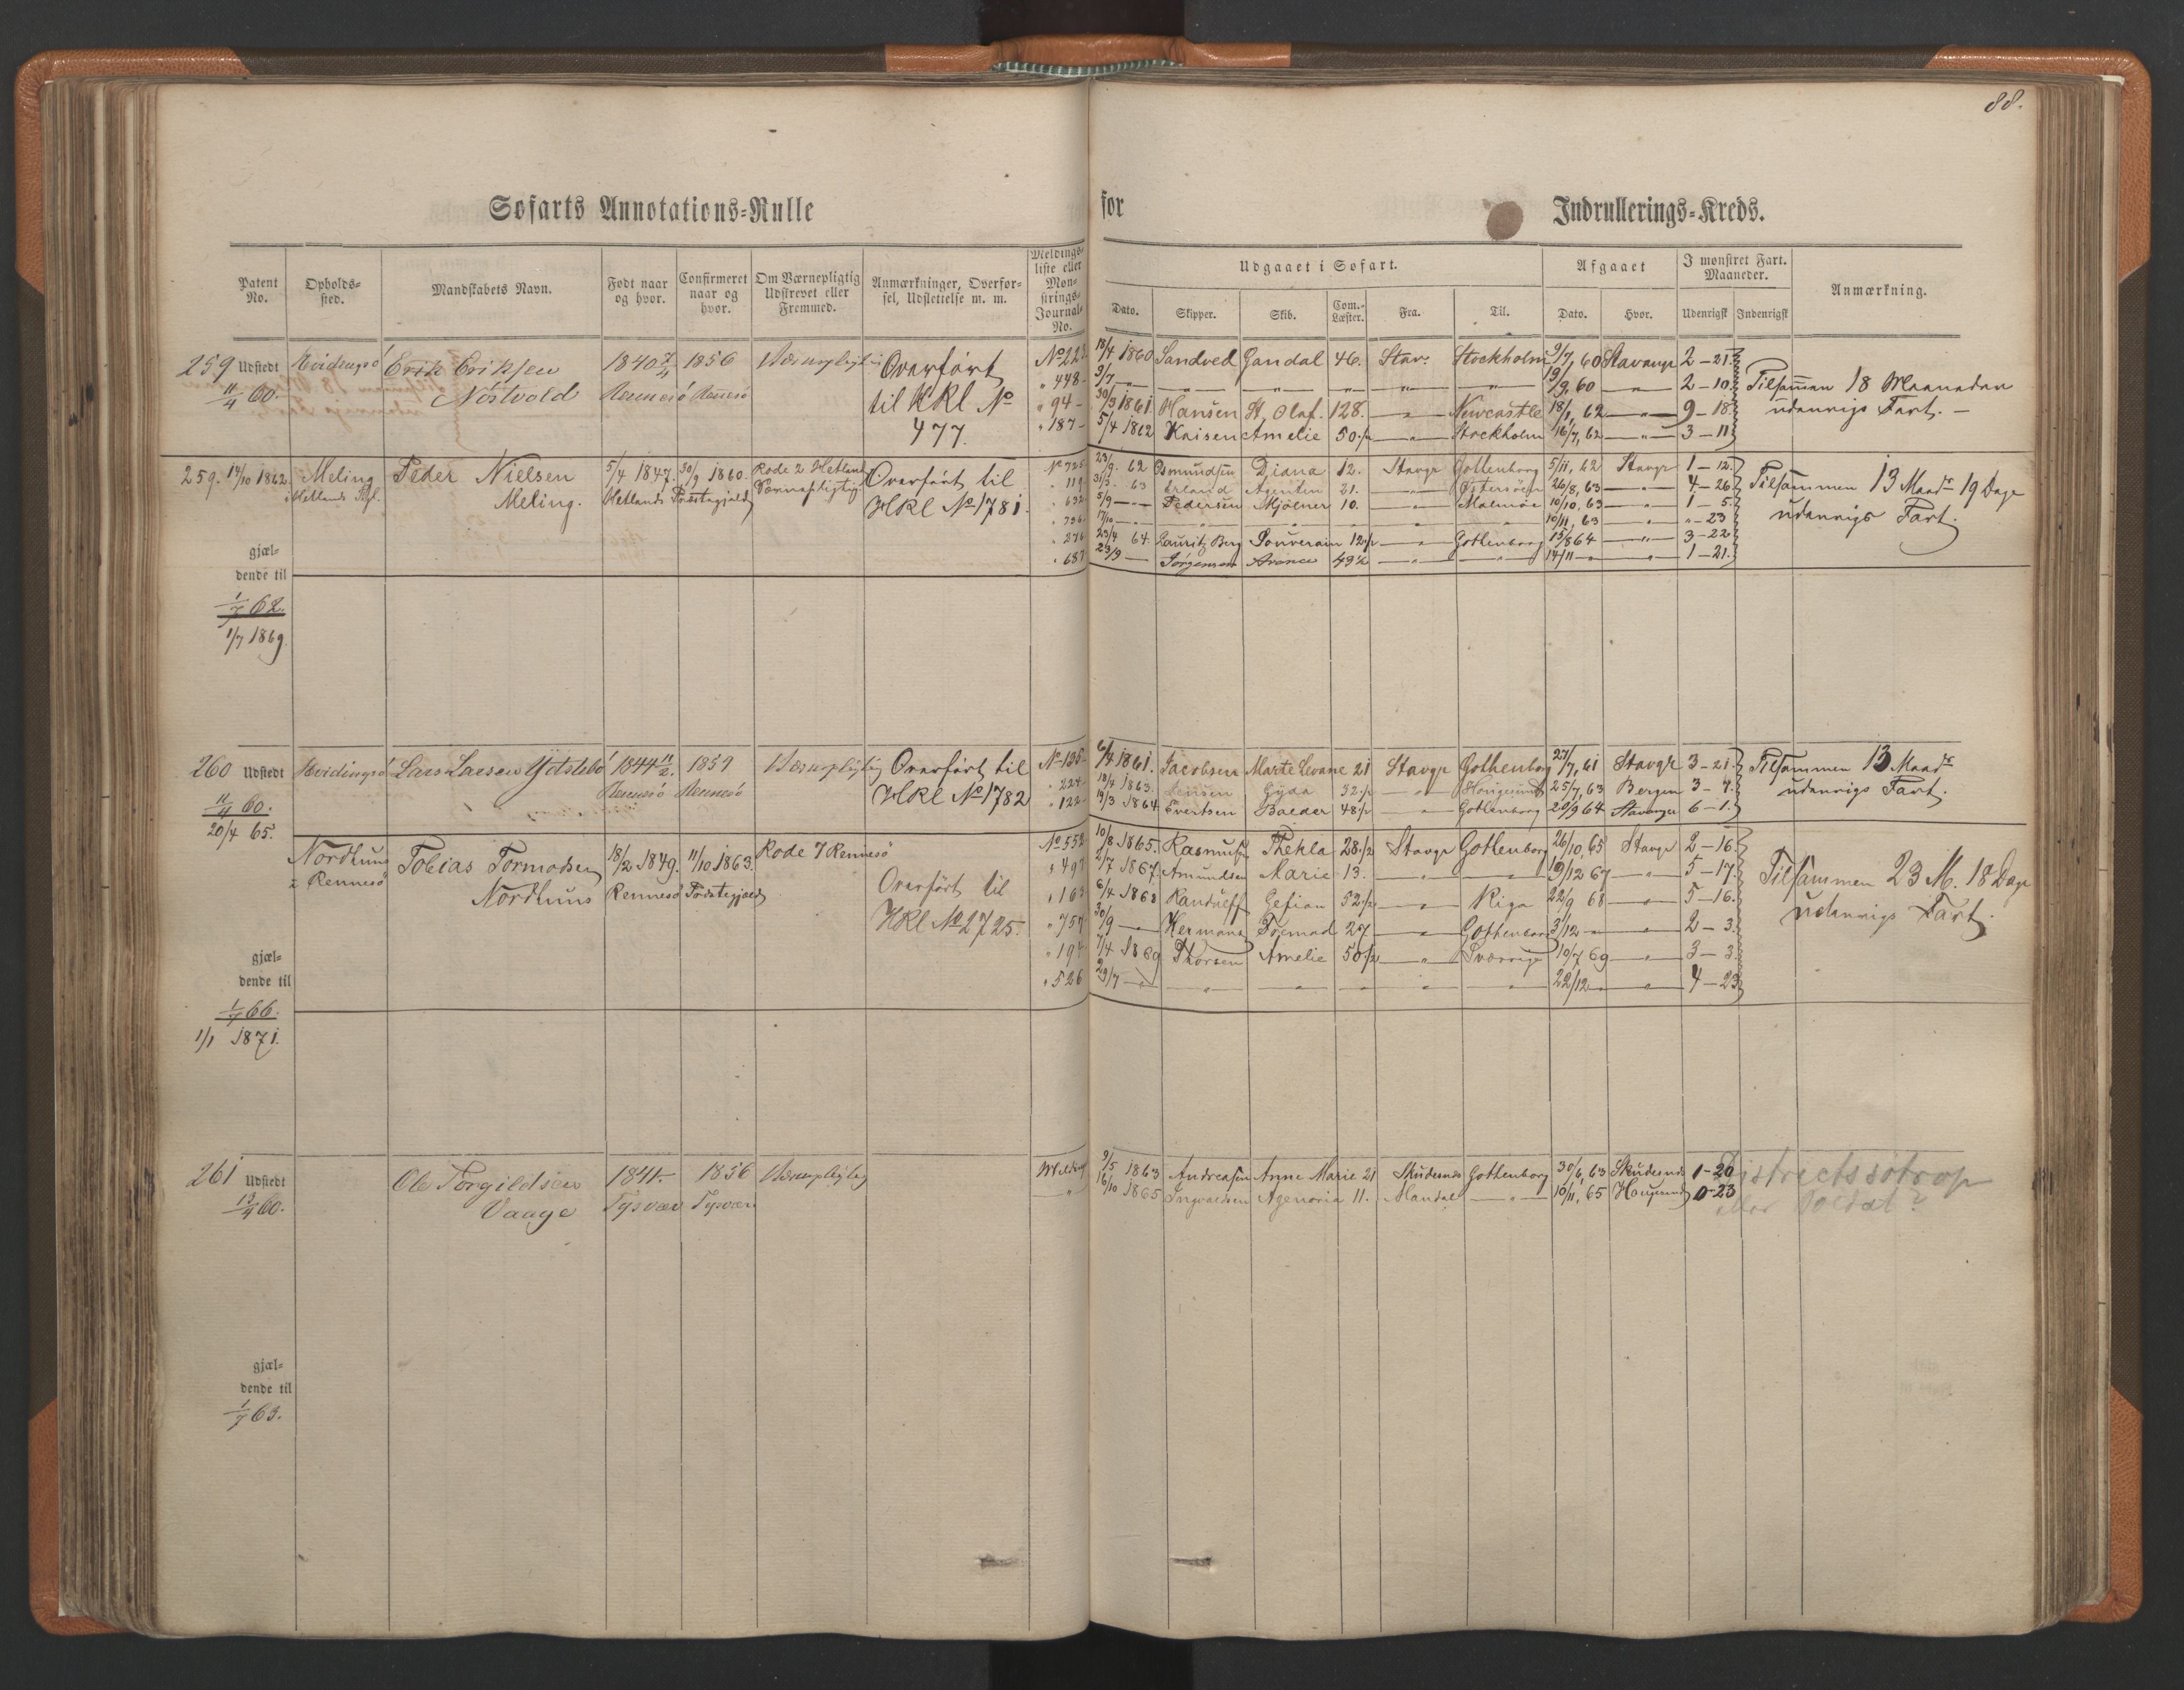 88.
Søfarts Annotations-Rulle for Indrullerings-Kreds.
Patent No. Opholds-sted. Mandskabets Navn. Født naar og hvor. Confirmeret naar og hvor. Om Værnepligtig Udskrevet eller Fremmed. Anmærkninger, Overførsel, Udslettelse m. m. Meldings-liste eller Mønstrings-Journal-No.
Udgaaet i Søfart. Afgaaet I mønstret Fart. Maaneder. Anmærkning.
Dato. Skipper. Skib. Com.-Læster. Fra. Til. Dato. Hvor. Udenrigsk Indenrigsk
259 Udstedt Hvidingsö Erik Eriksen 1840 1856 Værnepligtig Overført No 223 13/4 1860 Sandved Gandal 46. Stav. Stockholm 9/7, 60 Stavanger 2–21
11/4 60. Nöstvold Rennesö Rennesö til KRl No " 448 9/7 — " — " — " — " — " — 19/9, 60 — " — 2–10 Tilsamman 18 Maaneder
477. " 94 30/3 1861 Hansen St. Olaf. 128. — " — Newcastle 18/1, 62 — " — 9–18 udenrigs Fart. –
" 187 5/4 1862 Kaisen Amelie 50 1/2 — " — Stockholm 16/7, 62 — " — 3–11
259. 14/10 1862. Meling Peder Nielsen 5/4 1847. 30/9 1860. Rode 2 Hetland Overført til No 725 23/9. 62 Osmundsen Diana 12. Stavgr Gothenborg 5/11, 62 Stavgr 1–12.
i Hetlands Pgl. Meling. Hetlands Præstegjæld Værnepligtig HRl No 1781. " 119 31/3. 63 Erland Agenten 21. — " — Østersöen 26/8, 63 — " — 4–26 Tilsammen 13 Maadr 19 Dage
" 632 5/9 — Pedersen Mjölner 10. — " — Malmöe 10/10, 63 — " — 1–5. udenrigs Fart.
" 736 17/10 — " — " — " — " — " — 10/11, 63 — " — "–23
" 276 23/4 64. Lauritz Berg Souverain 12 1/2 — " — Gothenborg 15/8 64 — " — 3–22
" 687 23/9 — Jörgensen Avance 49 1/2 — " — " — 14/11 — " — 1–21.
gjæl-
dende til
1/7 62.
1/7 1869.
260 Udstedt Hvidingsö Lars Larsen Ydstebö 1844 11/2. 1859 Værnepligtig Overført til No 135 6/4 1861. Jacobsen Marte Levane 21 Stavgr Gothenborg 27/7, 61 Stavgr 3–21. Tilsammen 13 Maadr
11/4 60. Rennesö Rennesö HRl No 1782 " 224 18/4 1863. Jensen Gyda 32 1/2 — " — Hougesund 25/7, 63 Bergen 3–7. udenrigs Fart.
20/4 65. " 122 19/3 1864. Evertsen Balder 48 1/2 — " — Gothenborg 20/9 64 Stavanger 6–1.
Nordhuus Tobias Tormodsen 18/2 1849. 11/10 1863. Rode 7 Rennesö No 552 10/8 1865. Rasmussen Thekla 28 1/2 Stavgr Gothenborg 26/10, 65 Stavgr 2–16.
i Rennesö Nordhuus Rennesö Præstegjæld Overført til " 497 2/7 1867. Amundsen Marie 13. — " — — " — 19/12 67 — " — 5–17. Tilsammen 23 M. 18 Dage
HRl No 2725. " 163 6/4 1868 Randulff Gefion 52 1/2 — " — Riga 22/9 68 — " — 5–16. udenrigs Fart.
" 757 30/9 — Hermans Tremad 27 — " — Gothenborg 3/12 — " — 2–3.
" 194 7/4 1869 Thorsen Amelie 50 1/2 — " — Sverrige 10/7 69 — " — 3–3.
" 526 29/7 — " — " — " — " — " — 22/12 — " — 4–23
gjæl-
dende til
1/7 66.
1/1 1871.
261 Udstedt Ole Torgildsen 1841. 1856 Værnepligtig Melding 9/5 1863 Andreasen Anne Marie 21 Skudesnes Gothenborg 30/6, 63 Skudesnes 1–20 Districtssötrop
13/4 60. Vaage Tysvær Tysvær " 16/10 1865 Ingvaldsen Agenoria 11. Mandal — " — 10/11, 65 Hougesund 0–23 eller Soldat?
gjæl-
dende til
1/7 63.